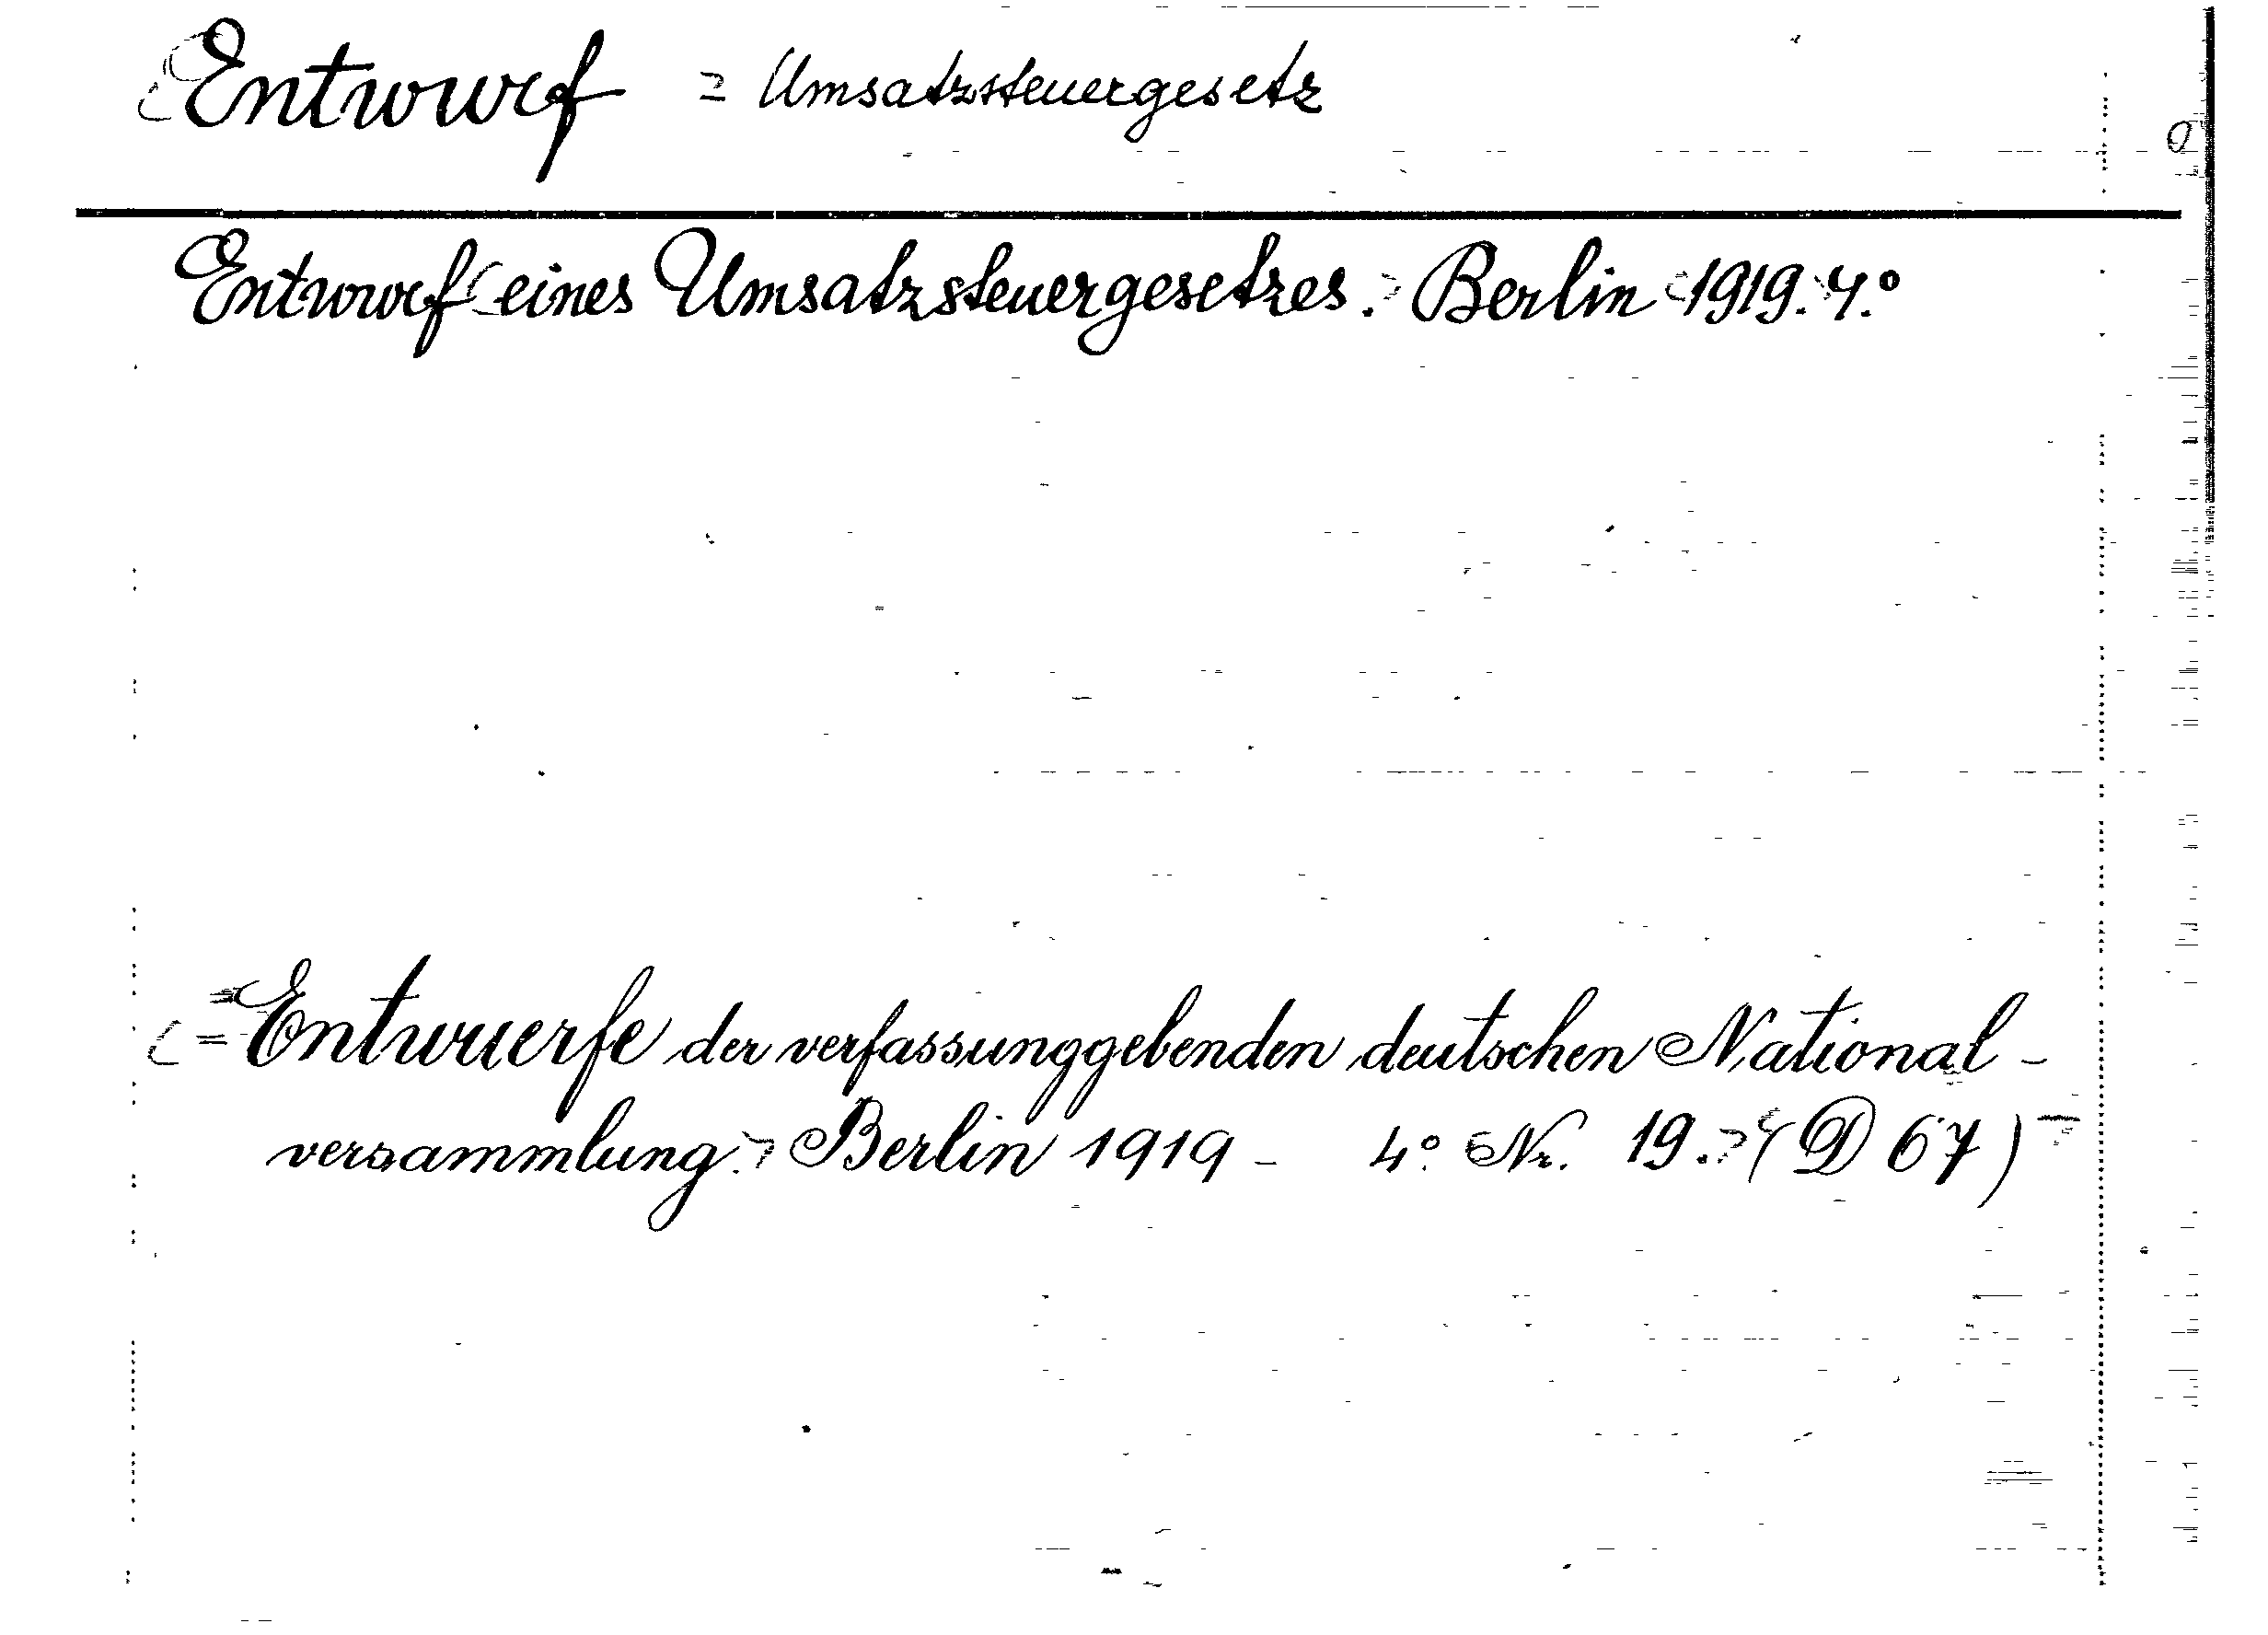 Entwurf = Umsatzsteuergesetz
Entwurf eines Umsatzsteuergesetzes. Berlin 1919. 4.°
= Entwuerfe der verfassunggebenden deutschen National-
versammlung. Berlin 1919 - 4° Nr. 19. (D 67)